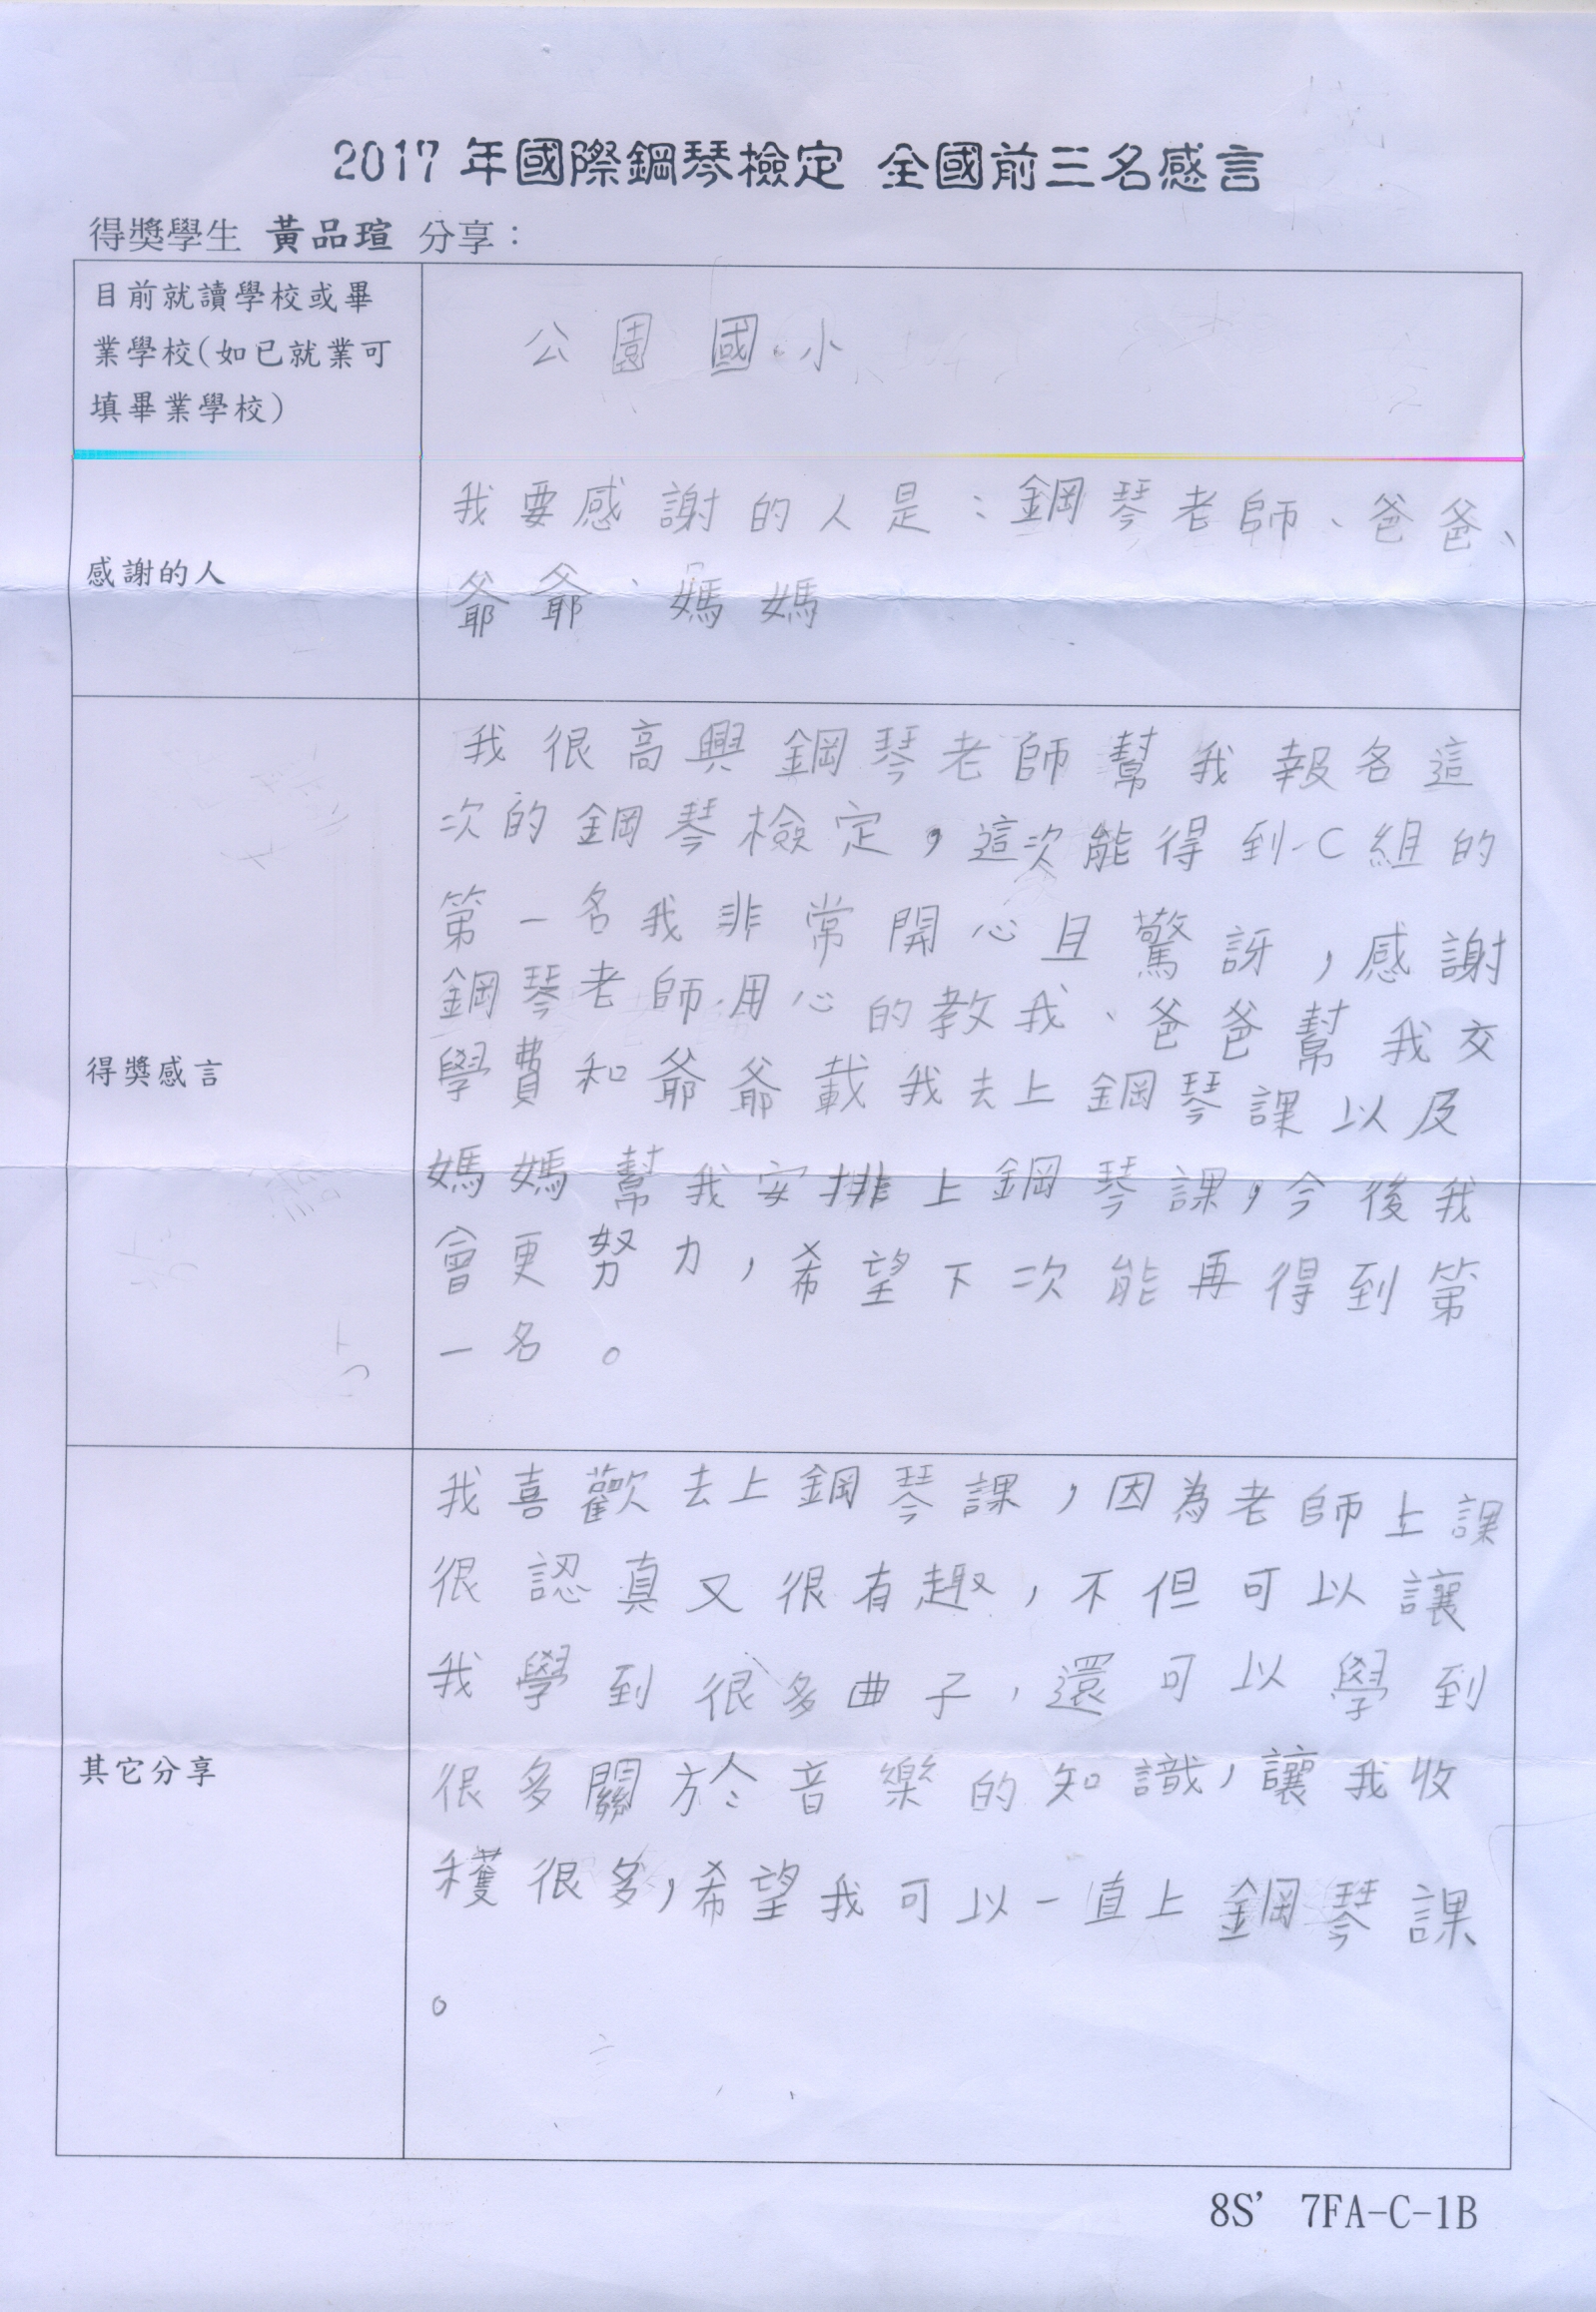 2017 年國際鋼琴檢定 全國前三名感言
得獎學生 黃品瑄 分享：
目前就讀學校或畢
業學校(如已就業可
填畢業學校)
公園國小
感謝的人
我要感謝的人是：鋼琴老師、爸爸、
爺爺、媽媽
得獎感言
我很高興鋼琴老師幫我報名這
次的鋼琴檢定，這次能得到C組的
第一名我非常開心且驚訝，感謝
鋼琴老師用心的教我、爸爸幫我交
學費和爺爺載我去上鋼琴課以及
媽媽幫我安排上鋼琴課，今後我
會更努力，希望下次能再得到第
一名。
其它分享
我喜歡去上鋼琴課，因為老師上課
很認真又很有趣，不但可以讓
我學到很多曲子，還可以學到
很多關於音樂的知識，讓我收
穫很多，希望我可以一直上鋼琴課
。
8S’ 7FA-C-1B